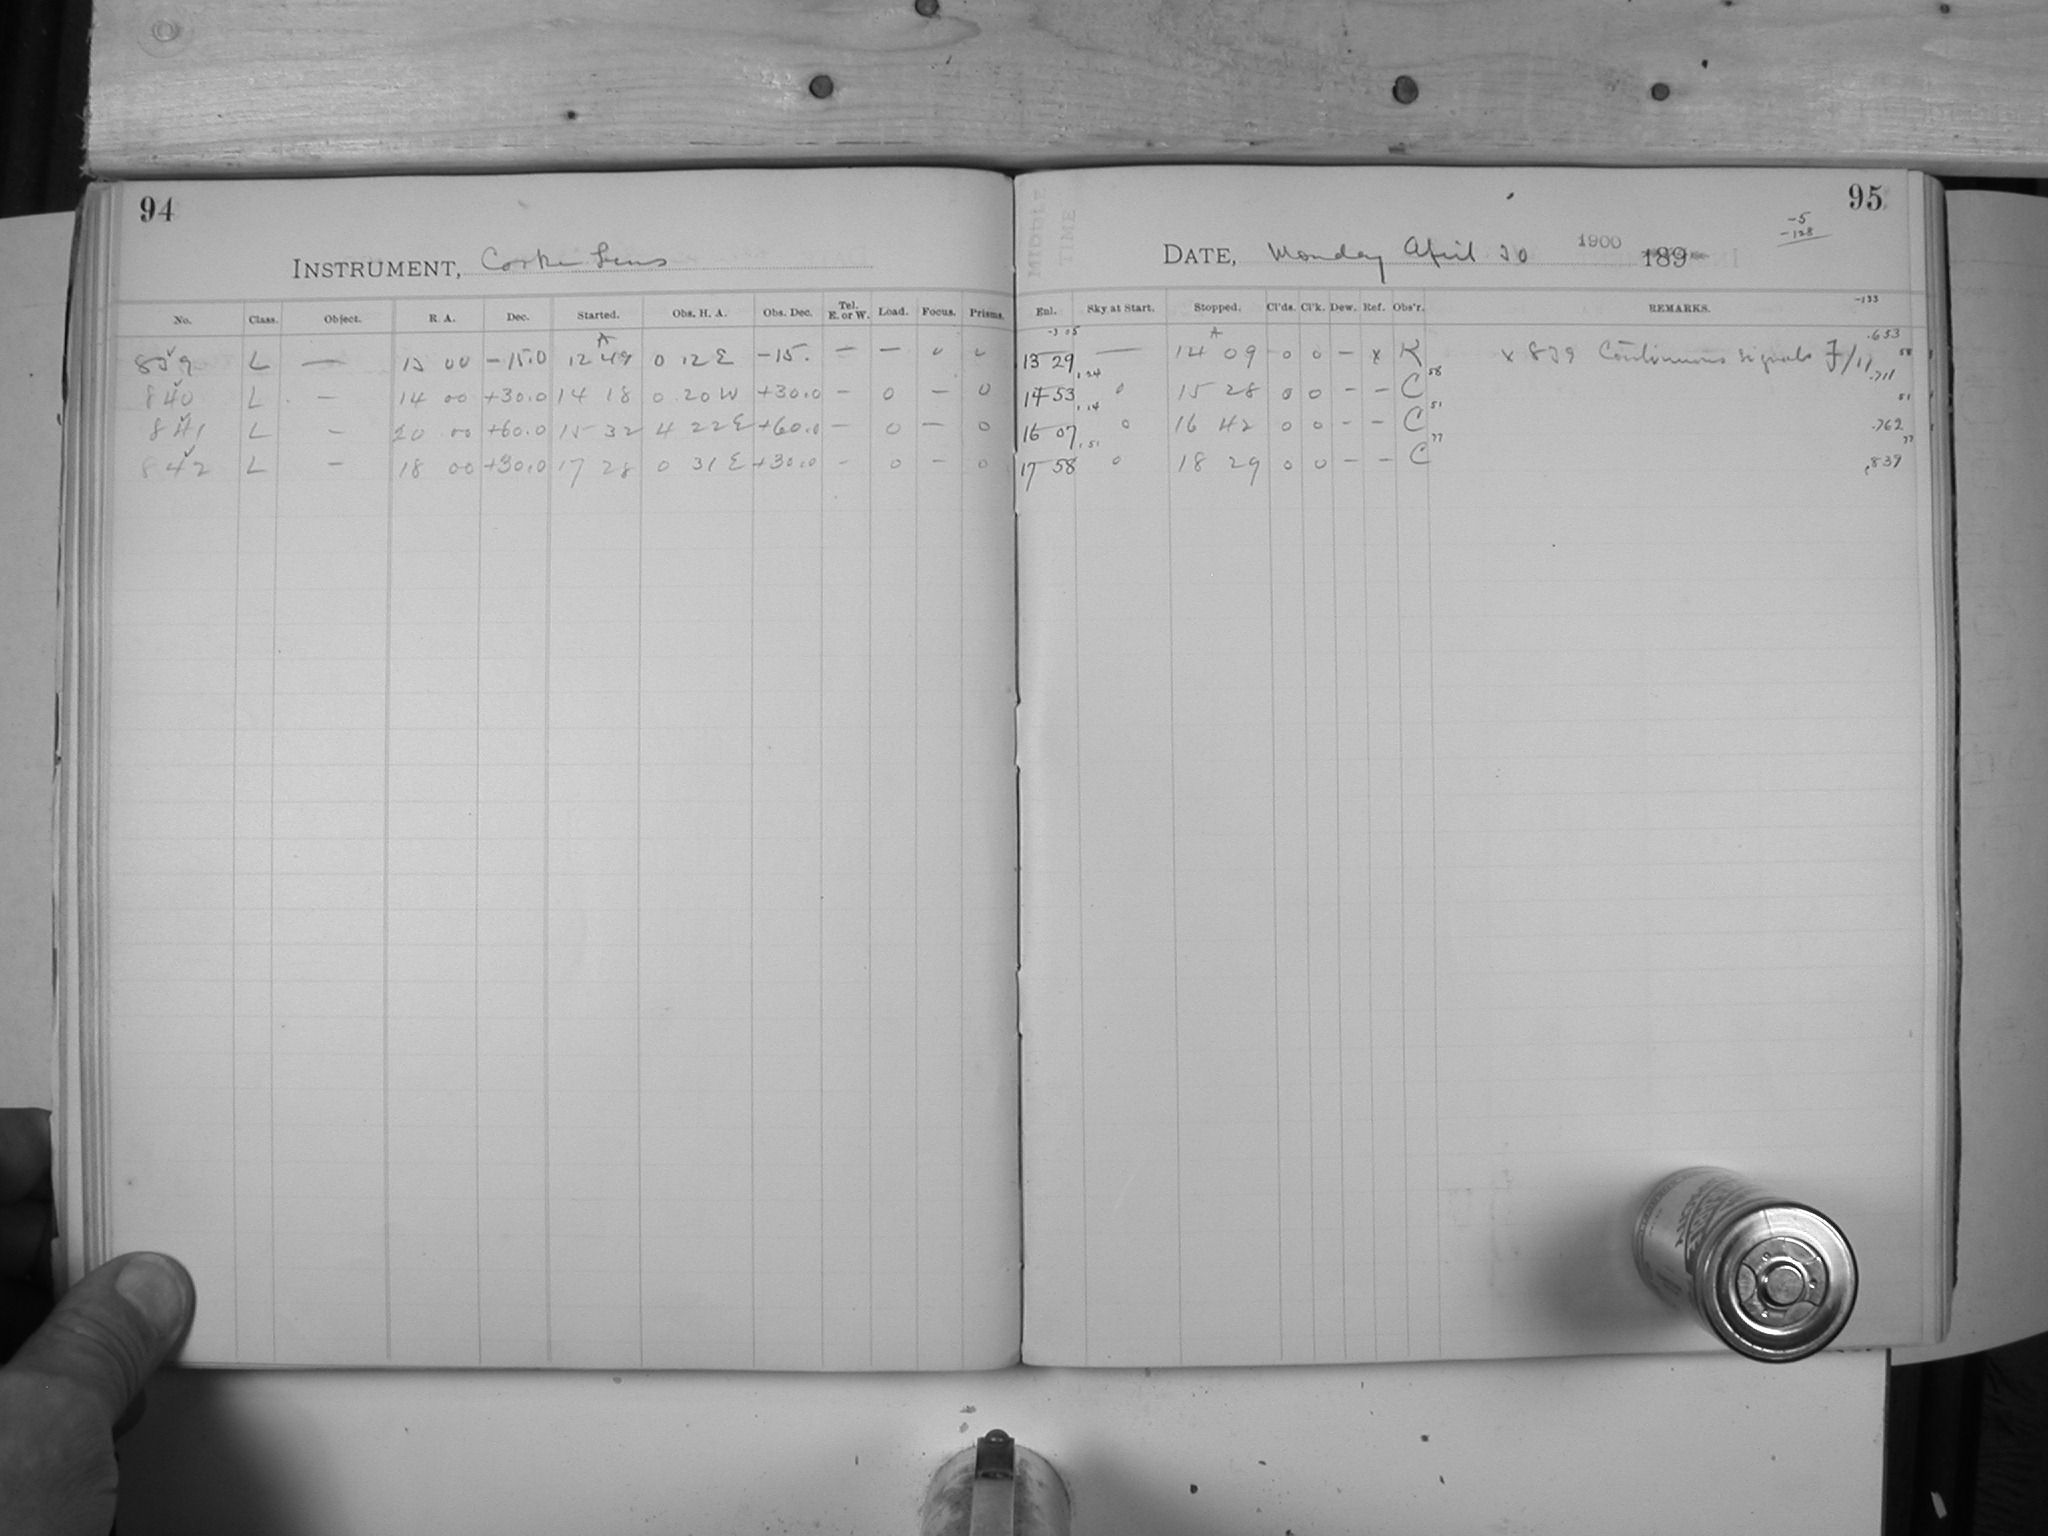 94
INSTRUMENT, Cooke Lens
No. Class. Object. R. A. Dec. Started. Obs. H. A. Obs. Dec. Tel. E. or W. Load. Focus. Prisms.
A
839 L — 13 00 -15.0 12 49 0 12 E -15. — — 0 0
840 L — 14 00 +30.0 14 18 0 20 W +30.0 — 0 — 0
841 L — 20 00 +60.0 15 32 4 22 E +60.0 — 0 — 0
842 L — 18 00 +30.0 17 28 0 31 E +30.0 — 0 — 0
95
-5
-128
MIDDLE
TIME
DATE, Monday April 30 1900 189
Enl. Sky at Start. Stopped. Cl'ds. Cl'k. Dew. Ref. Obs'r. REMARKS. -133
-3 05 A .653
13 29 — 14 09 0 0 — x K x 839 Continuous signals F/11 58
.24 58 .711
14 53 0 15 28 0 0 — — C 51
.14 51
16 07 0 16 42 0 0 — — C .762
.51 77 77
17 58 0 18 29 0 0 — — C .839